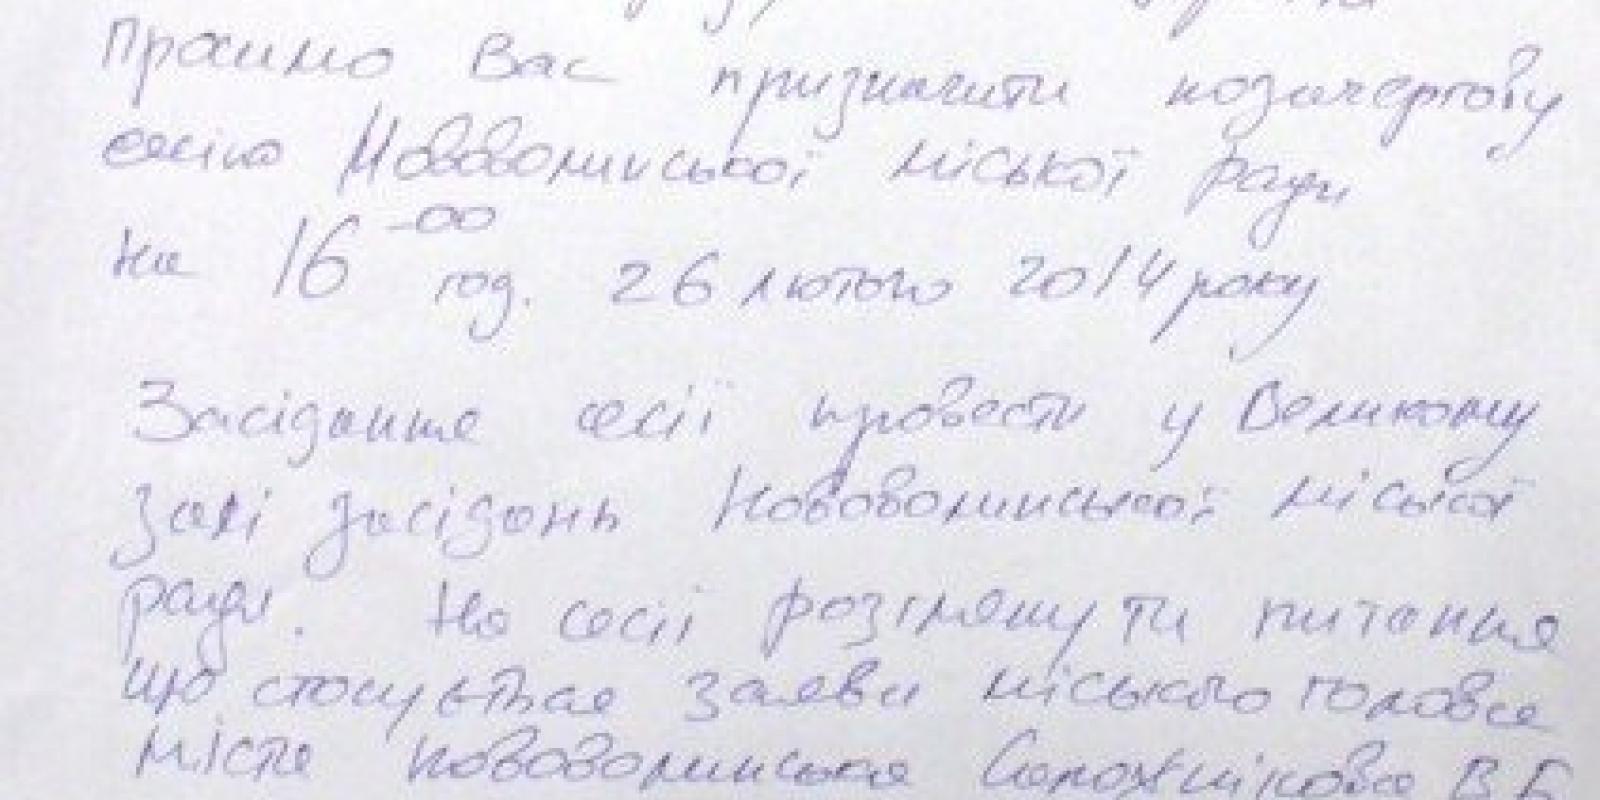 Просимо Вас призначити позачергову
сесію Нововолинської міської ради
на 16-00 год. 26 лютого 2014 року
Засідання сесії провести у Великому
залі засідань Нововолинської міської
ради. На сесії розглянути питання
що стосується заяви міського голови
міста Нововолинська Сапожнікова В Б